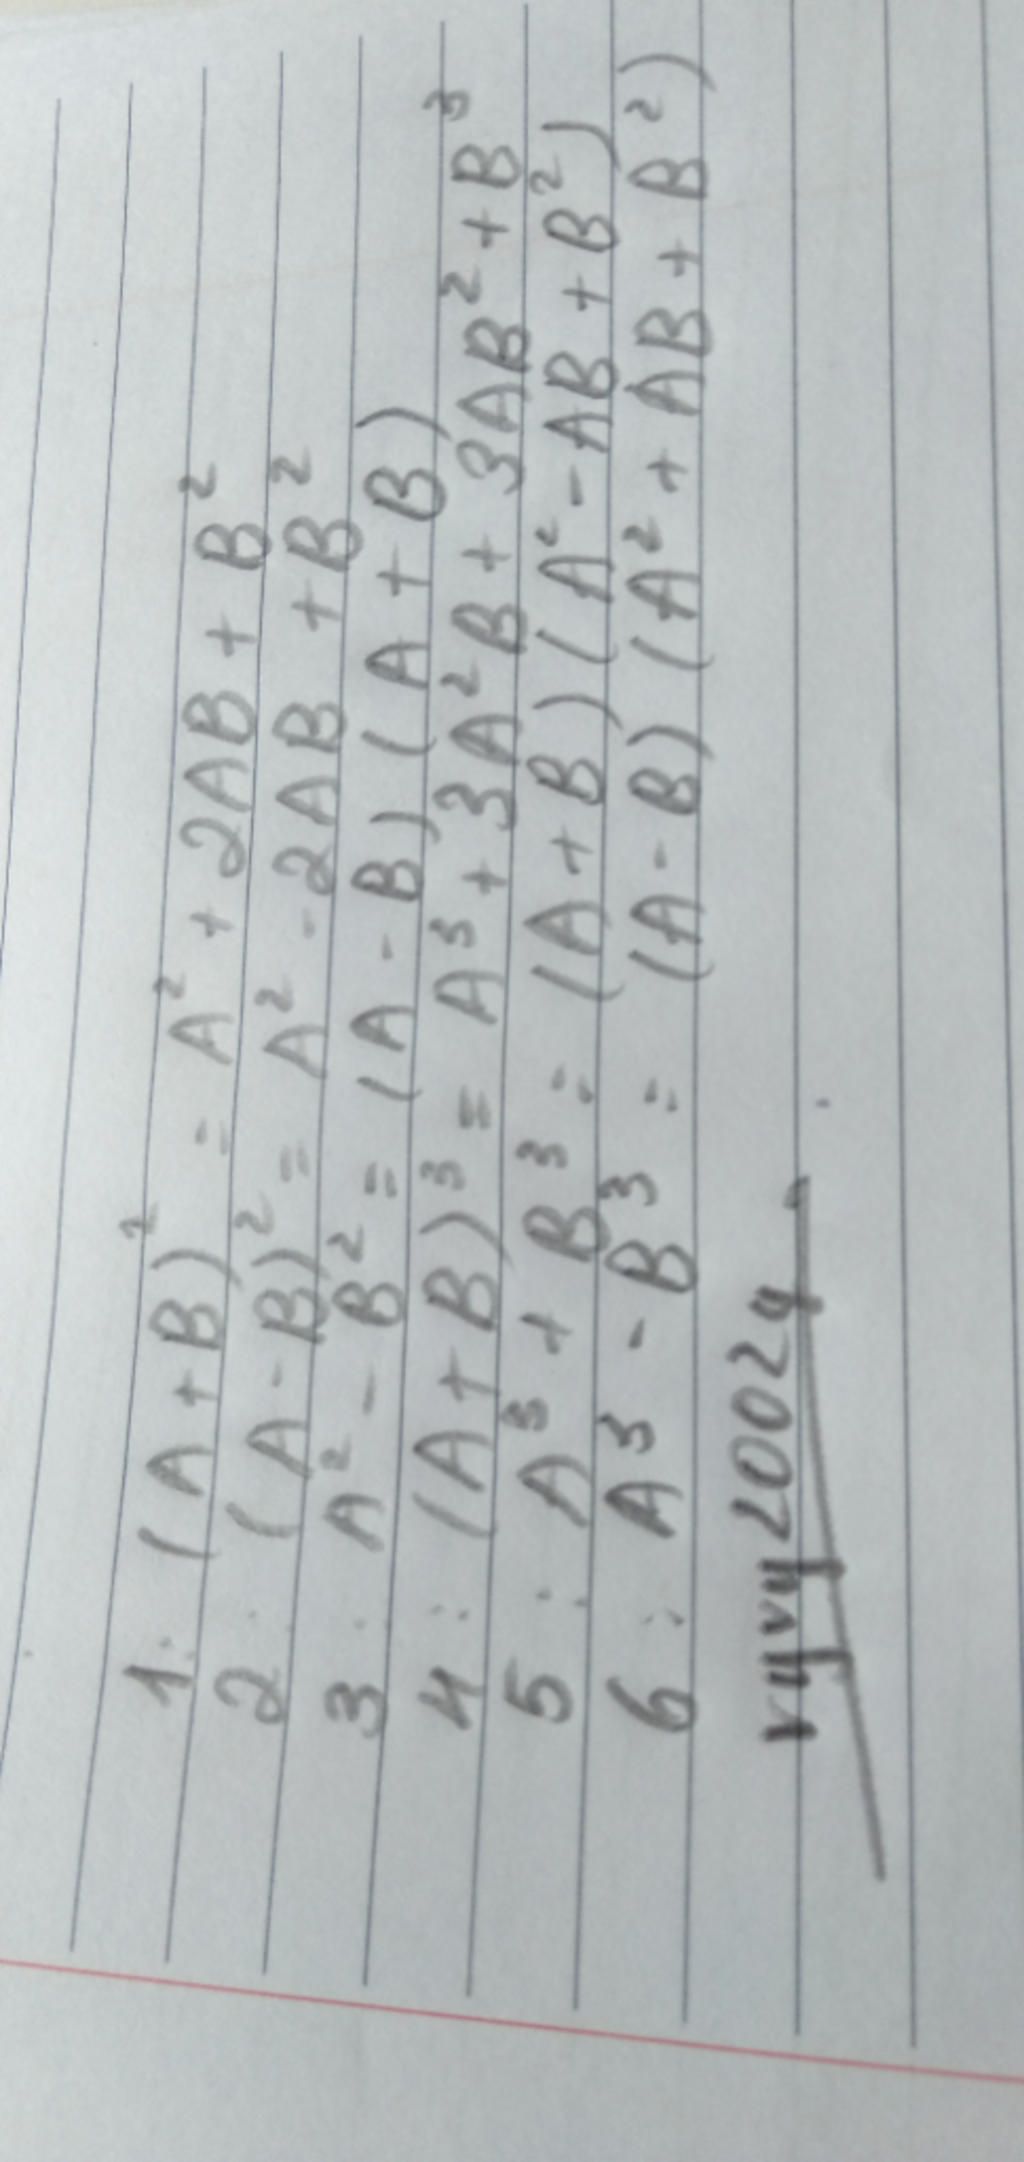 1: (A + B)² = A² + 2AB + B²
2: (A - B)² = A² - 2AB + B²
3: A² - B² = (A - B) (A + B)
4: (A + B)³ = A³ + 3A²B + 3AB² + B³
5: A³ + B³ = (A + B) (A² - AB + B²)
6: A³ - B³ = (A - B) (A² + AB + B²)
vyvy20024